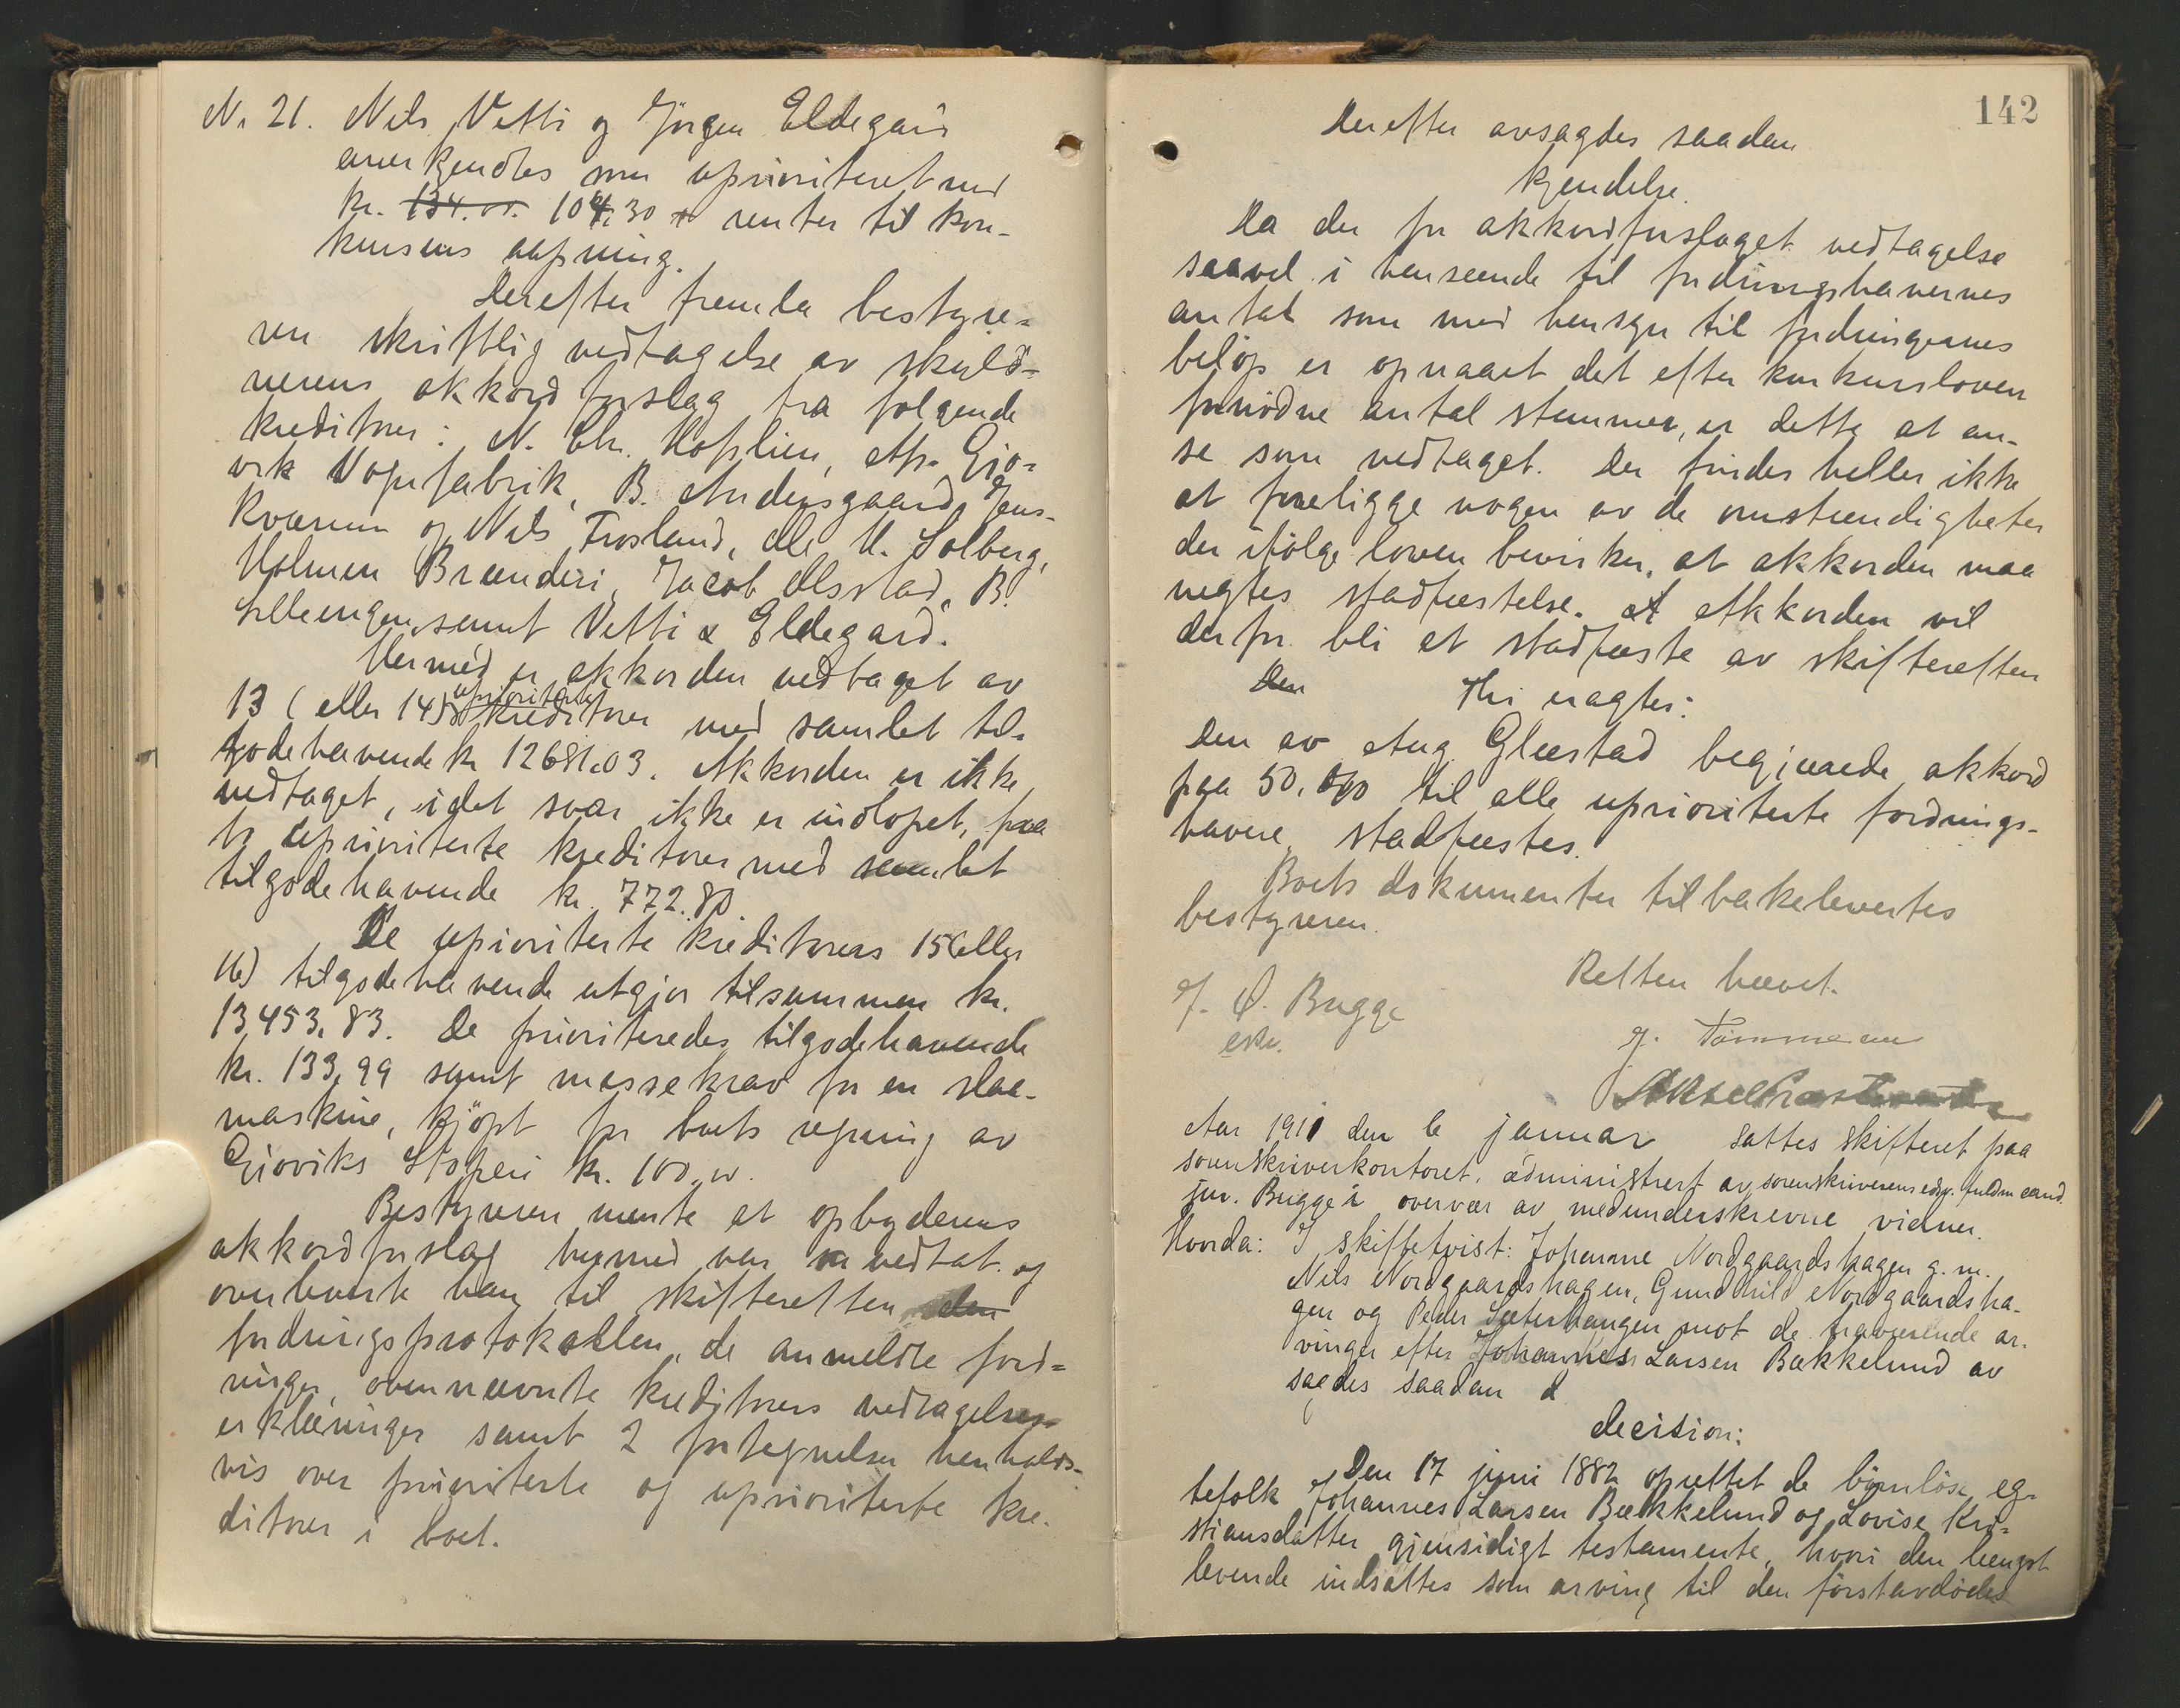 N. 21. Nils Vetti og Jörgen Eldegard
anerkjendtes som uprioriteret med
kr. 134.00. 104,30 + renter til kon-
kursens aapning.
Derefter fremla bestyre-
ren skriftlig vedtagelse av skyld-
nerens akkordforslag fra følgende
kreditorer: N. Chr. Hoflien, A/s. Gjö-
vik Vognfabrik, B. Andersgaard, Jens
Kværnum og Nils Frosland, M. H. Solberg,
Holmen Brænderi, Jacob Alstad, B.
Lilleengen, samt Vetti & Eldegard.
Hermed er akkorden vedtaget av
uprioriterte
13 (eller 14) kreditorer med samlet til-
godehavende kr 12681.03. Akkorden er ikke
vedtaget, idet svar ikke er indlöpet, fra
to uprioriterte kreditorer med samlet
tilgodehavende kr. 772.80
De uprioriterte kreditorers 15 (eller
16) tilgodehavende utgjør tilsammen kr.
13,453,83. De prioriteredes tilgodehavende
kr. 133,99 samt massekrav for en slaa-
maskine, kjöpt før boets aapning av
Gjøviks Støperi kr. 100.00.
Bestyreren mente at opbyderens
akkordforslag hermed var vedtat og
overleverte han til skifteretten den
fordringsprotokollen, de anmeldte ford-
ringer, ovennævnte kreditorers vedtagelses-
erklæringer samt 2 fortegnelser henholds-
vis over prioriterte og uprioriterte kre-
ditorer i boet.
142
Derefter avsagdes saadan
Kjendelse.
Da der for akkordforslaget vedtagelse
saavel i henseende til fordringshavernes
antal som med hensyn til fordringernes
beløp er opnaaet det efter konkursloven
fornødne antal stemmer, er dette at an-
se som vedtaget. Der findes heller ikke
at foreligge nogen av de omstændigheter
der ifølge loven bevirker, at akkorden maa
negtes stadfæstelse. At Akkorden vil
derfor bli at stadfæste av skifteretten
Den Thi eragtes:
Den av Aug. Glæstad begjærede akkord
paa 50,0/0 til alle uprioriterte fordrings-
havere, stadfæstes.
Boets dokumenter tilbakelevertes
bestyreren.
Retten hævet.
J. O. Bugge
esk.
J. Tömmeraas
Aar 1911 den 6 januar sattes skifteret paa
sorenskriverkontoret, administrert av sorenskriverens edsv. fuldm cand.
jur. Bugge i overvær av medunderskrevne vidner.
Hvorda: I skiftetvist: Johanne Nordgaardshagen g. m.
Nils Nordgaardshagen, Gundhild Nordgaardsha-
gen og Peder Sæterhaugen mot de fraværende ar-
vinger efter Johannes Larsen Bækkelund av
sagdes saadan d
decision:
Den 17 juni 1882 oprettet de barnløse eg-
tefolk Johannes Larsen Bækkelund og Lovise Kri-
stiansdatter gjensidigt testamente, hvori den længst
levende indsattes som arving til den førstavdødes